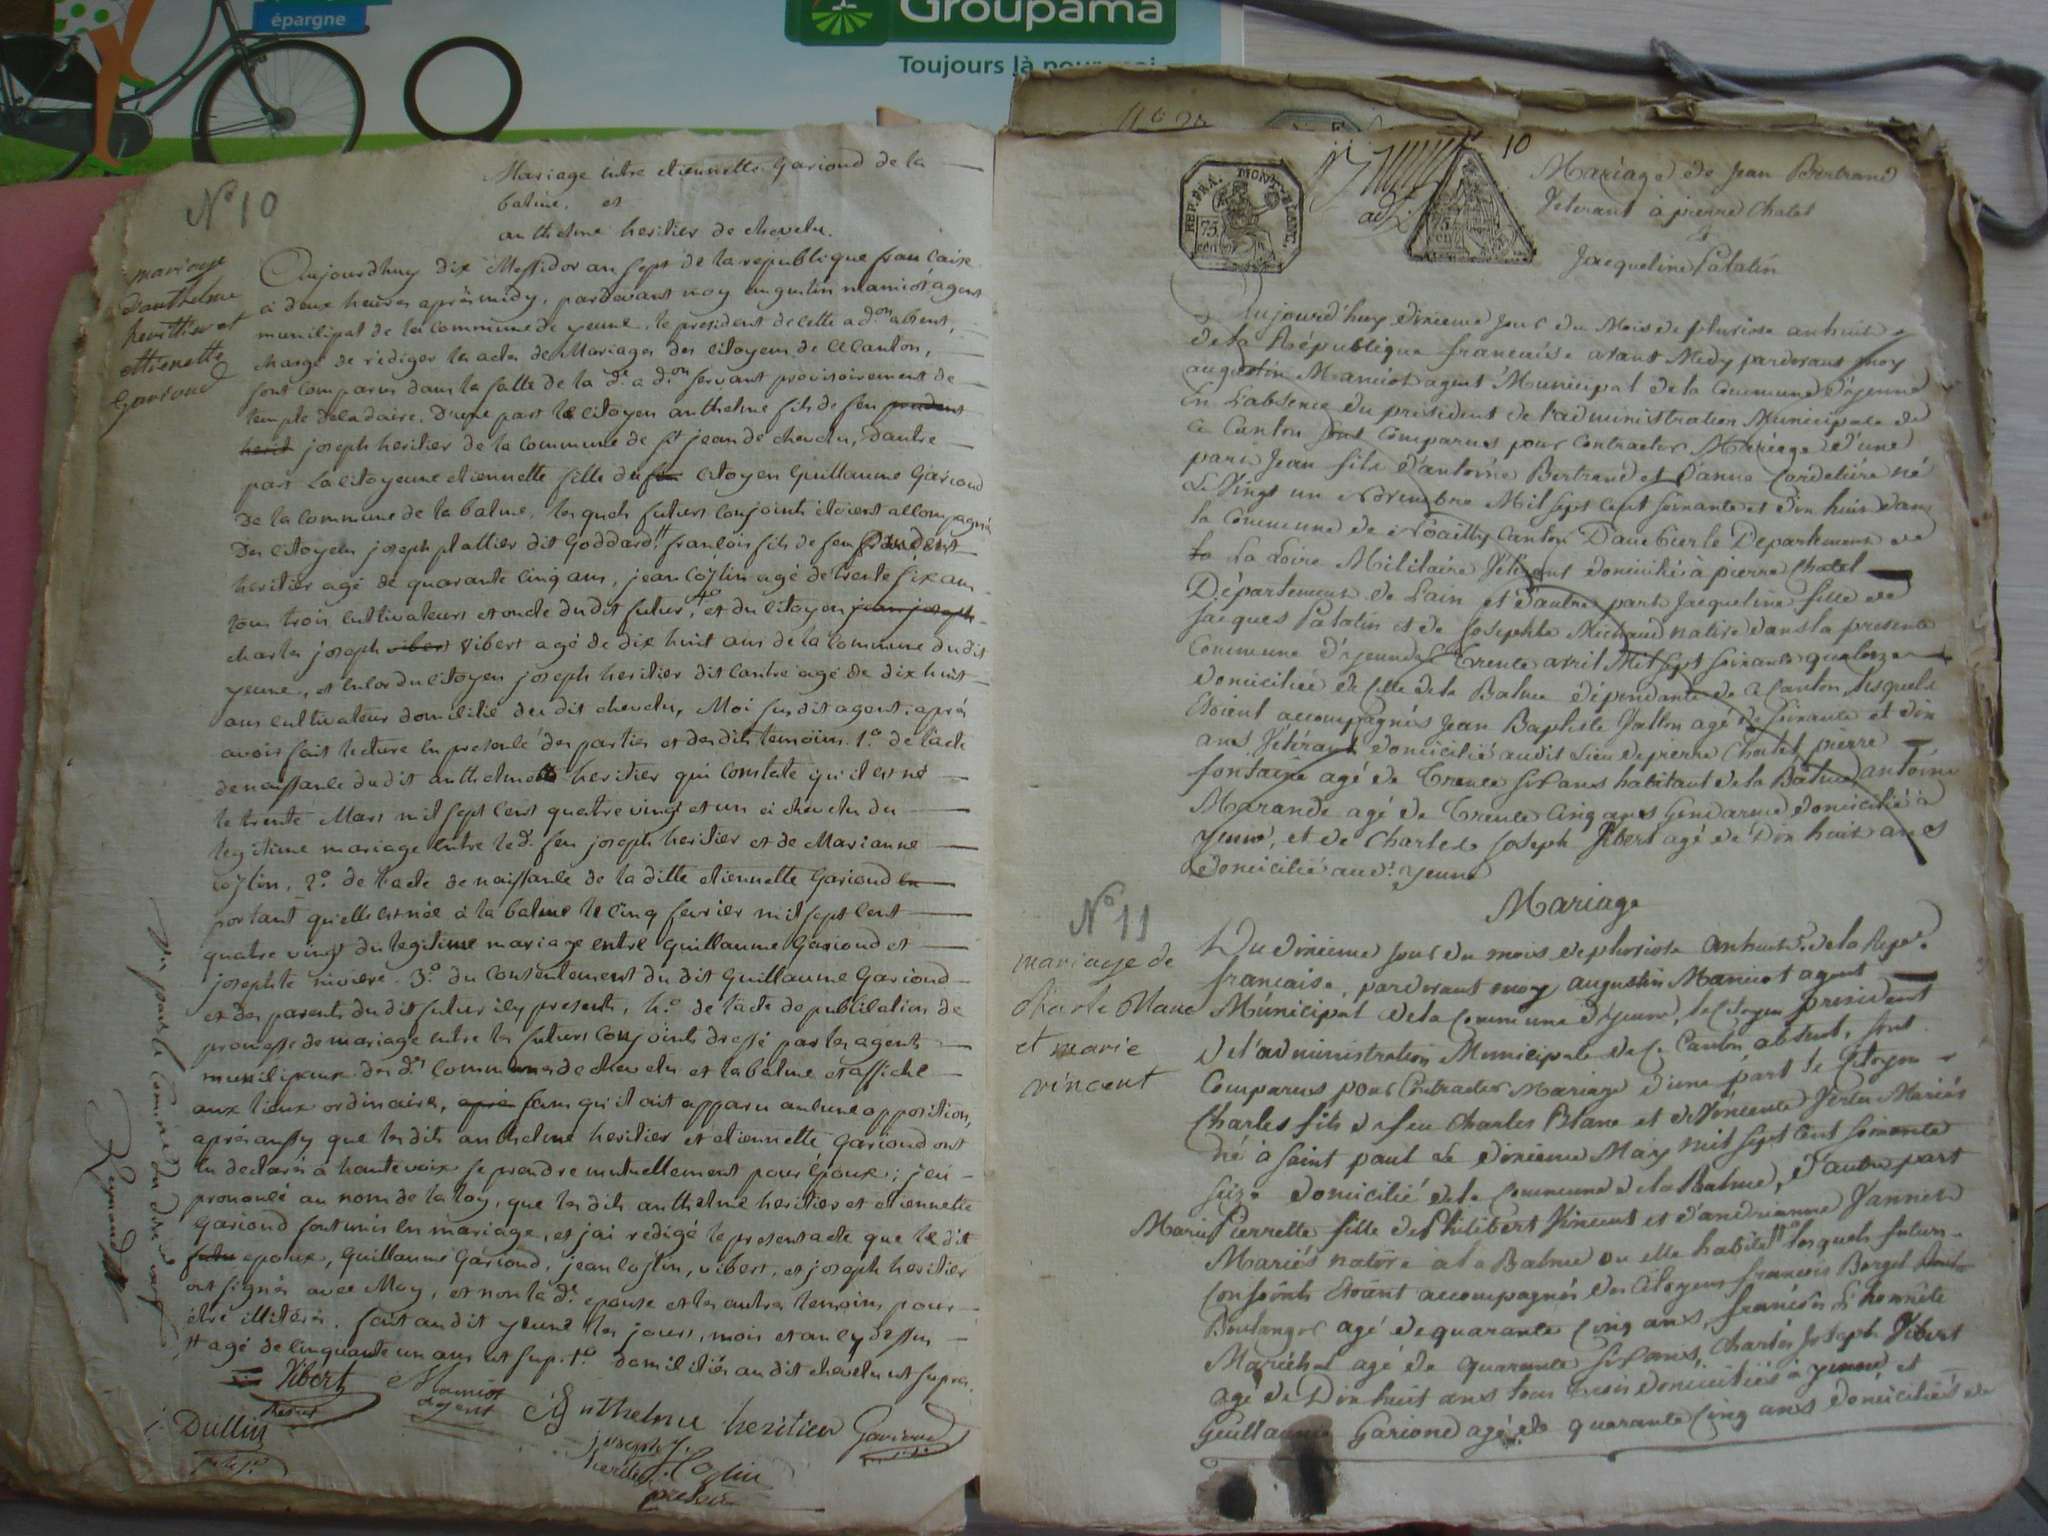 épargne
Groupama
Toujours là pour moi
N° 10
Mariage entre etiennette Gariond de la
balme. et
anthelme heritier de chevelu.
mariage
d'anthelme
heritier et
ettienette
Gariond
Aujourdhuy dix Messidor an sept de la republique francaise
à deux heures après midy, pardevant moy augustin maniot agent
municipal de la commune de yenne, le president de cette ad.on absent,
chargé de rediger les actes de Mariages des citoyens de ce Canton,
sont comparus dans la salle de la d.e ad.on servant provisoirement de
temple decadaire, D'une part le citoyen anthelme fils de feu prudent
herit joseph heritier de la commune de st jean de chevelu, D'autre
part La citoyenne etiennette fille du feu citoyen Guillaume Gariond
De la commune de la balme, les quels futurs conjoints etoient accompagnés
Des citoyens joseph plattier dit Goddard, francois fils de feu
heritier agé de quarante cinq ans, jean cojlin agé de trente six ans
tous trois cultivateurs et oncle du dit futur, 4° et du citoyen jean joseph
charles joseph vibert vibert agé de dix huit ans de la commune du dit
yenne, et enfin du citoyen joseph heritier dit agé de dix huit
ans cultivateur domicilié du dit chevelu, Moi susdit agent, après
avoir fait lecture en presence des parties et des dits temoins. 1.° de l'acte
de naissance du dit anthelme heritier qui constate qu'il est né
le trente Mars mil sept cent quatre vingt et un à chevelu du
legitime mariage entre le d. feu joseph heritier et de Marianne
cojlin, 2.° de l'acte de naissance de la ditte etiennette Gariond en
portant qu'elle est née à la balme le cinq fevrier mil sept cent
quatre vingt du legitime mariage entre Guillaume Gariond et
josephte riviere. 3.° du consentement du dit Guillaume Gariond
et des parents du dit futur icy presents, 4.° de l'acte de publication de
promesse de mariage entre les futurs conjoints dressé par les agents
municipaux des d.es communes de chevelu et la balme et affiché
aux lieux ordinaires, après sans qu'il ait apparu aucune opposition,
après aussy que les dits anthelme heritier et etiennette Gariond ont
eu declaré à haute voix se prendre mutuellement pour Epoux; j'ai
prononcé au nom de la loy, que les dits anthelme heritier et etiennette
Gariond sont unis en mariage, et j'ai redigé le present acte que le dit
futu epoux, Guillaume Gariond, jean cojlin, vibert, et joseph heritier
ont signés avec Moy, et non la d.e epouse et les autres temoins pour
être illiterés. fait au dit yenne les jours, mois et an cy dessus
agé de cinquante un ans ut sup. 1.° domiciliés au dit chevelu ut supra.
Vibert
Maniot
agent
Anthelme heritier
Gariond
Dullin
joseph
heritier
J. Cojlin
present
Reynaud
10
REP. FRA. MONT-BLANC.
75
cen
75
cen
Mariage de Jean Bertrand
Veterant à pierre Chatel
&
Jacqueline Patatin
Aujourd'huy dixieme jour du Mois de pluviose an huit
de la République francaise avant Midy pardevant moy
augustin Maniot agent Municipal de la Commune d'yenne
En L'absence du président de l'administration Municipale de
ce Canton sont Comparus pour Contracter Mariage d'une
part Jean fils d'antoine Bertrand et d'anne Cordeliere né
Le Vingt un Novembre Mil sept Cent soixante et dix huit dans
la Commune de Noailly Canton Departement de
la La Loire Militaire Véterant domicilié à pierre Chatel
Département de L'ain et d'autre part Jacqueline fille de
Jacques Patatin et de Josephte Michaud native dans la presente
Commune d'yenne le Trente avril Mil sept soixante quatorze
domiciliée de celle de la Balme dépendante de ce Canton, lesquels
Etoient accompagnés Jean Baptiste Vallon agé de soixante et dix
ans Véterant domicilié audit Lieu de pierre Chatel, pierre
fontaine agé de Trente six ans habitant de la Balme, antoine
Marande agé de Trente Cinq ans Gendarme domicilié à
yenne, et de Charles Joseph Vibert agé de Dix huit ans
domicilié au d.t yenne
Mariage
N° 11
mariage de
charle Blanc
et marie
vincent
Du dixieme jour du mois de pluviose an huit.e de la Rep.e
francaise, pardevant moy augustin Maniot agent
Municipal de la Commune d'yenne, le Citoyen president
de l'administration Municipale de ce Canton absent, sont
Comparus pour Contracter Mariage d'une part le Citoyen
Charles fils de feu Charles Blanc et de Vincente Mariés
né à saint paul Le dixieme May mil sept cent soixante
seize domicilié de la Commune de la Balme, D'autre part
Marie Pierrette fille de Philibert Vincent et d'andrianne Jannet
Mariés native à la Balme ou elle habite lesquels futurs
Conjoints Etoient accompagnés des Citoyens francois Berget
Boulanger agé de quarante Cinq ans, francois L'honnête
Maréchal agé de quarante six ans, Charles Joseph Vibert
agé de Dix huit ans tous trois domiciliés à yenne et
Guillaume Gariond agé de quarante Cinq ans domiciliés de